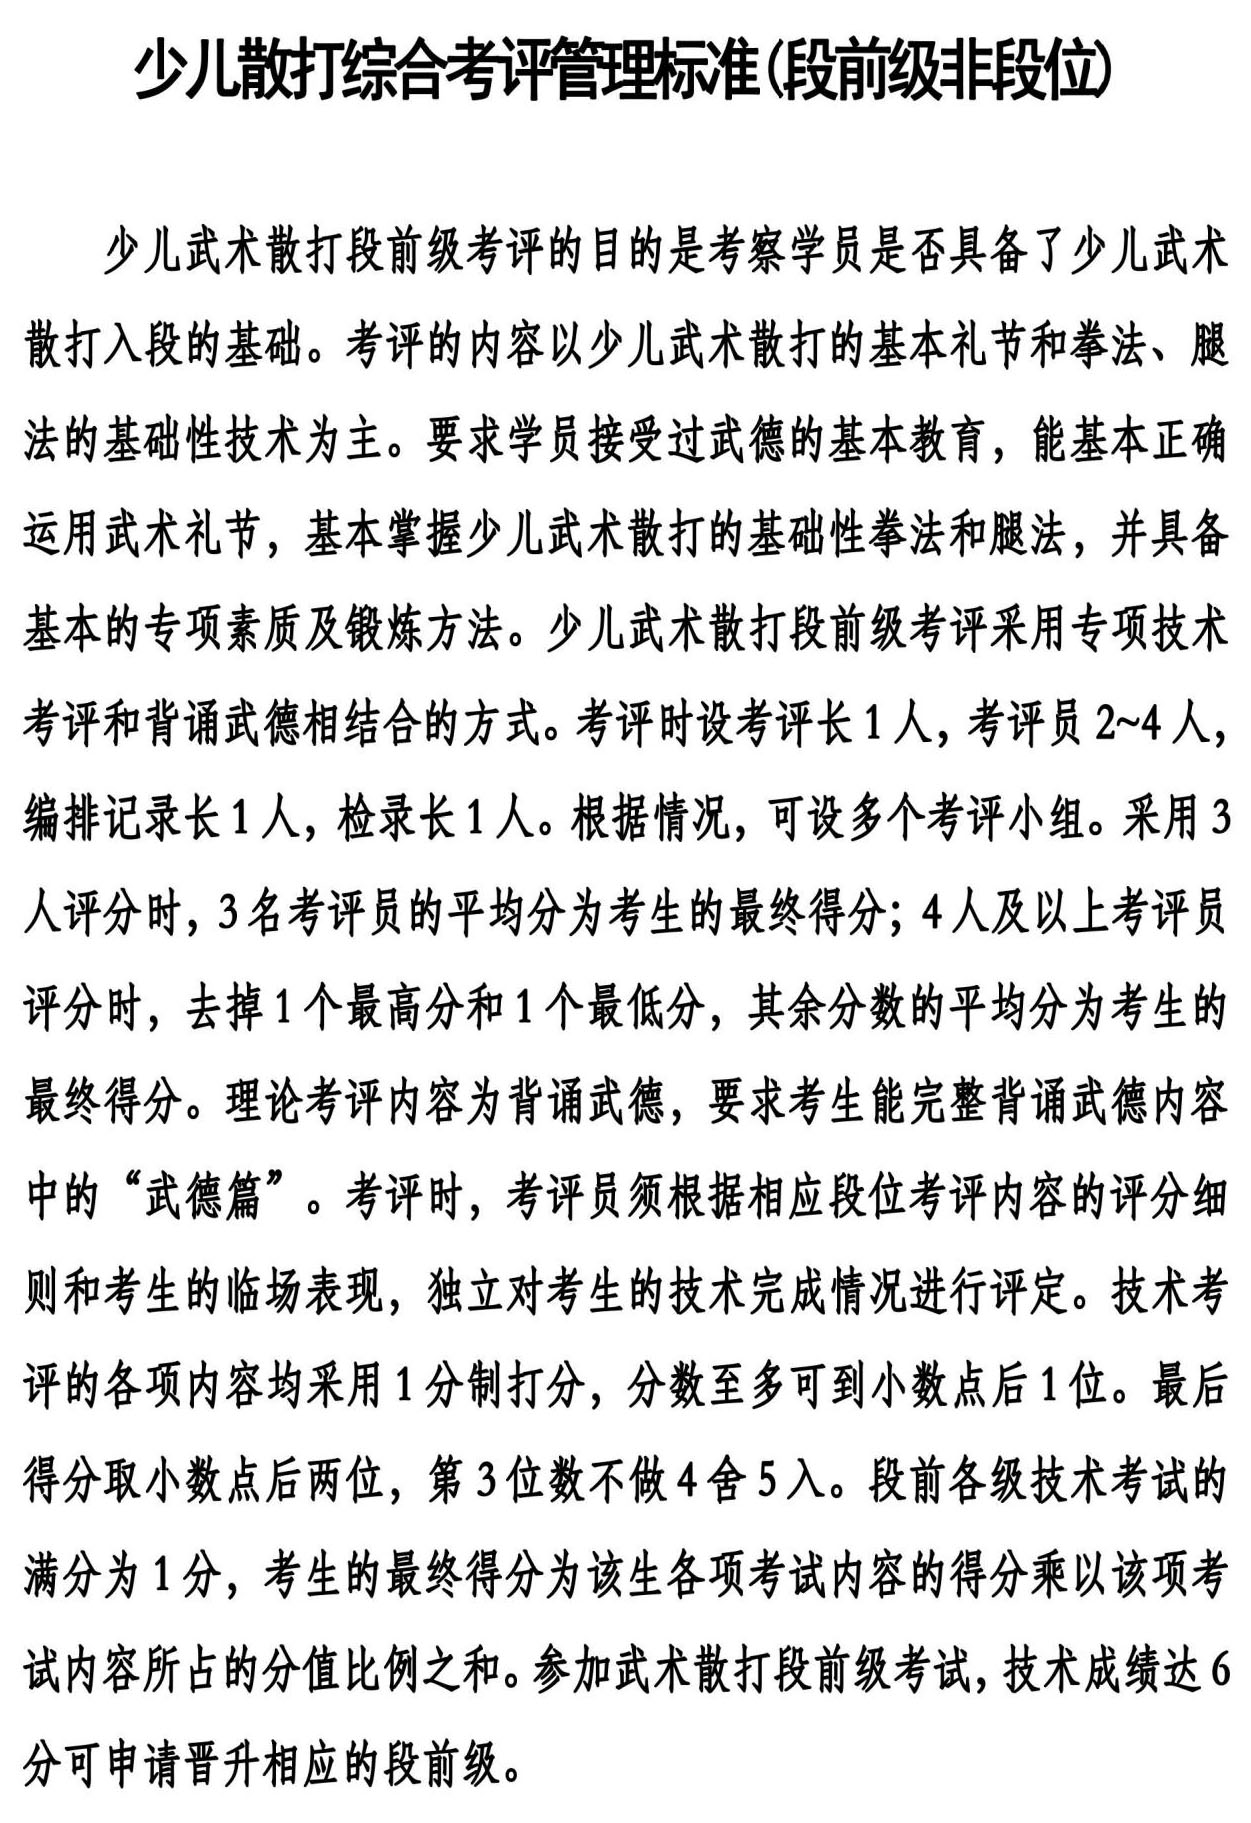 少儿散打综合考评管理标准(段前级非段位)
少儿武术散打段前级考评的目的是考察学员是否具备了少儿武术
散打入段的基础。考评的内容以少儿武术散打的基本礼节和拳法、腿
法的基础性技术为主。要求学员接受过武德的基本教育，能基本正确
运用武术礼节，基本掌握少儿武术散打的基础性拳法和腿法，并具备
基本的专项素质及锻炼方法。少儿武术散打段前级考评采用专项技术
考评和背诵武德相结合的方式。考评时设考评长1人，考评员2~4人，
编排记录长1人，检录长1人。根据情况，可设多个考评小组。采用3
人评分时，3名考评员的平均分为考生的最终得分；4人及以上考评员
评分时，去掉1个最高分和1个最低分，其余分数的平均分为考生的
最终得分。理论考评内容为背诵武德，要求考生能完整背诵武德内容
中的“武德篇”。考评时，考评员须根据相应段位考评内容的评分细
则和考生的临场表现，独立对考生的技术完成情况进行评定。技术考
评的各项内容均采用1分制打分，分数至多可到小数点后1位。最后
得分取小数点后两位，第3位数不做4舍5入。段前各级技术考试的
满分为1分，考生的最终得分为该生各项考试内容的得分乘以该项考
试内容所占的分值比例之和。参加武术散打段前级考试，技术成绩达6
分可申请晋升相应的段前级。